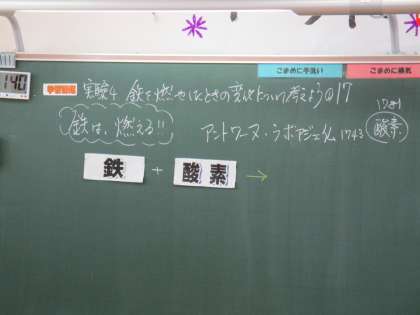 こまめに手洗い
こまめに換気
140
学習課題 実験4 鉄を燃やしたときの変化について考えよう@17
鉄は、燃える!!
アントワーヌ・ラボアジェ 1743
酸素
鉄 + 酸素 →